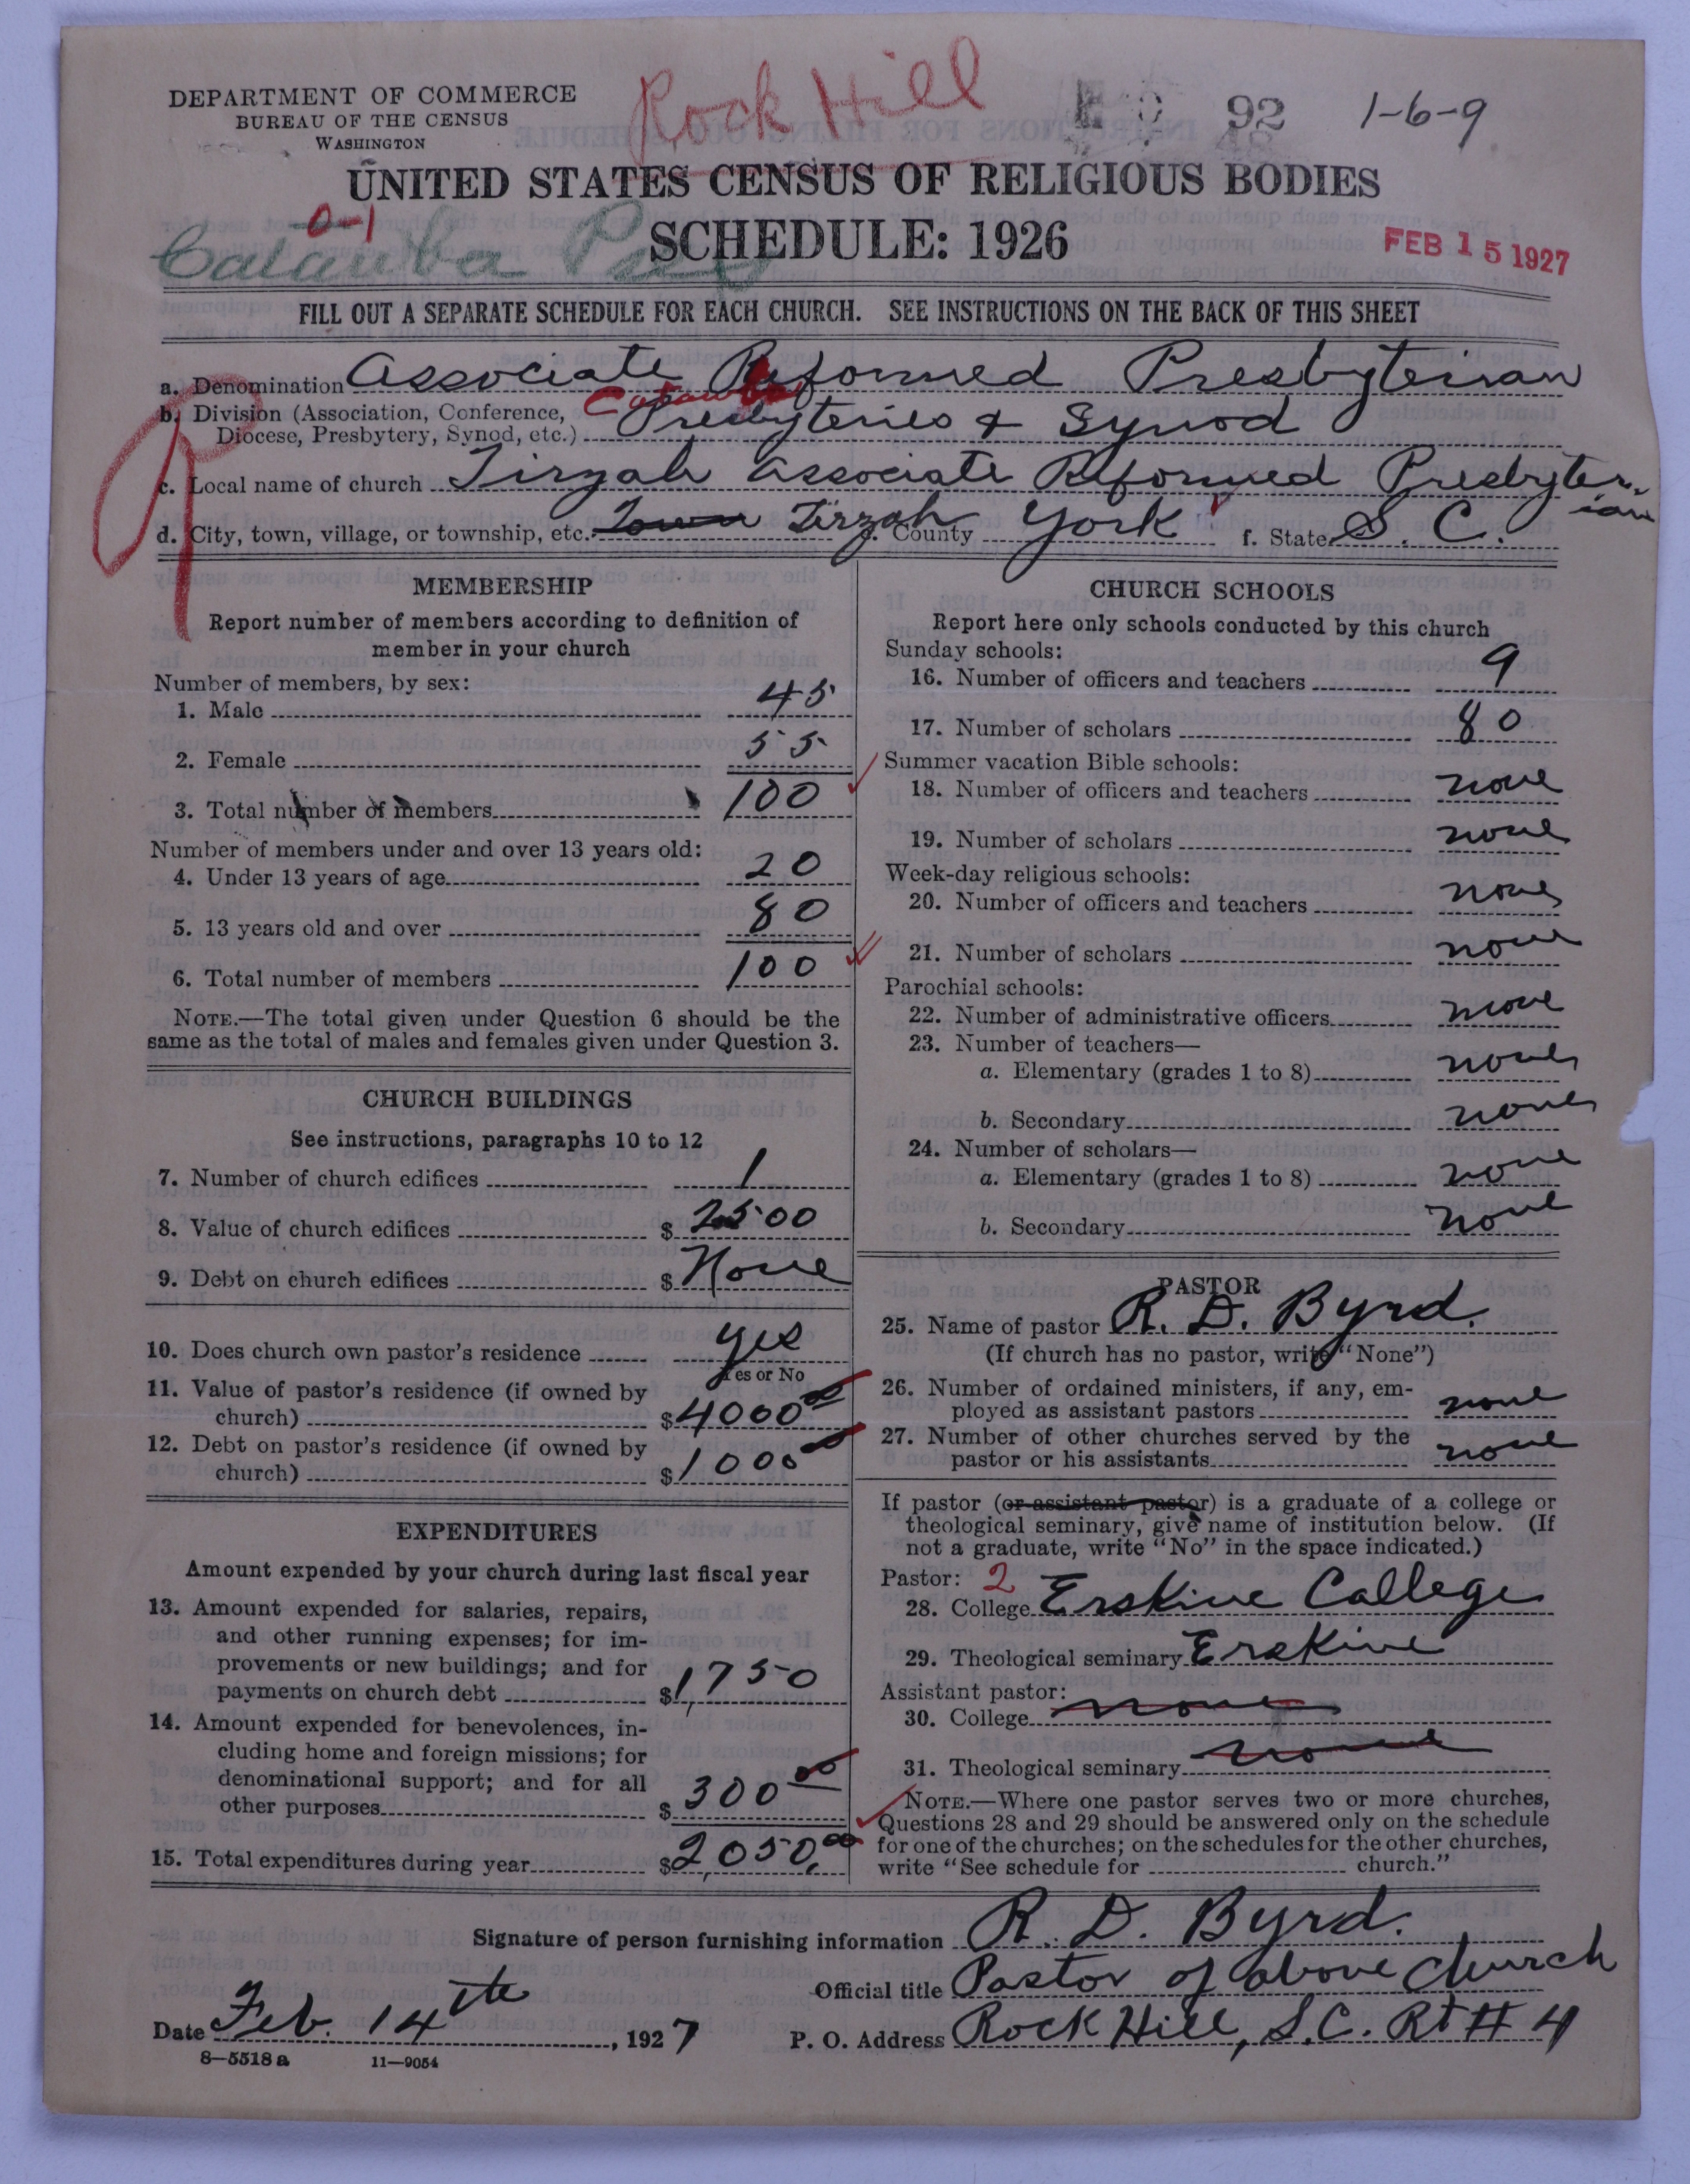 Rock Hill
92
1-6-9
DEPARTMENT OF COMMERCE
BUREAU OF THE CENSUS
WASHINGTON
UNITED STATES CENSUS OF RELIGIOUS BODIES
0-1
Catawba Presby
SCHEDULE: 1926
FEB 15 1927
FILL OUT A SEPARATE SCHEDULE FOR EACH CHURCH. SEE INSTRUCTIONS ON THE BACK OF THIS SHEET
a. Denomination Associate Reformed Presbyterian
Catawba
b. Division (Association, Conference, Diocese, Presbytery, Synod, etc.) Presbyteries & Synod
c. Local name of church Tirzah Associate Reformed Presbyterian
d. City, town, village, or township, etc. Town Tirzah e. County York f. State S. C.
MEMBERSHIP
Report number of members according to definition of
member in your church
Number of members, by sex:
1. Male 45
2. Female 55
3. Total number of members 100
Number of members under and over 13 years old:
4. Under 13 years of age 20
5. 13 years old and over 80
6. Total number of members 100
NOTE.—The total given under Question 6 should be the
same as the total of males and females given under Question 3.
CHURCH BUILDINGS
See instructions, paragraphs 10 to 12
7. Number of church edifices 1
8. Value of church edifices $ 2500
9. Debt on church edifices $ None
10. Does church own pastor's residence yes
Yes or No
11. Value of pastor's residence (if owned by
church) $ 4000 00
12. Debt on pastor's residence (if owned by
church) $ 1000
EXPENDITURES
Amount expended by your church during last fiscal year
13. Amount expended for salaries, repairs,
and other running expenses; for im-
provements or new buildings; and for
payments on church debt $ 1,750
14. Amount expended for benevolences, in-
cluding home and foreign missions; for
denominational support; and for all
other purposes $ 300 00
15. Total expenditures during year $ 2,050.00
CHURCH SCHOOLS
Report here only schools conducted by this church
Sunday schools:
16. Number of officers and teachers 9
17. Number of scholars 80
Summer vacation Bible schools:
18. Number of officers and teachers none
19. Number of scholars none
Week-day religious schools:
20. Number of officers and teachers none
21. Number of scholars none
Parochial schools:
22. Number of administrative officers none
23. Number of teachers—
a. Elementary (grades 1 to 8) none
b. Secondary none
24. Number of scholars—
a. Elementary (grades 1 to 8) none
b. Secondary none
PASTOR
25. Name of pastor R. D. Byrd.
(If church has no pastor, write "None")
26. Number of ordained ministers, if any, em-
ployed as assistant pastors none
27. Number of other churches served by the
pastor or his assistants none
If pastor (or assistant pastor) is a graduate of a college or
theological seminary, give name of institution below. (If
not a graduate, write "No" in the space indicated.)
Pastor: 2
28. College Erskine College
29. Theological seminary Erskine
Assistant pastor:
30. College none
31. Theological seminary none
NOTE.—Where one pastor serves two or more churches,
Questions 28 and 29 should be answered only on the schedule
for one of the churches; on the schedules for the other churches,
write "See schedule for church."
Signature of person furnishing information R. D. Byrd.
Official title Pastor of above church
Date Feb. 14th, 1927 P. O. Address Rock Hill, S.C. Rt # 4
8—5518 a 11—9054